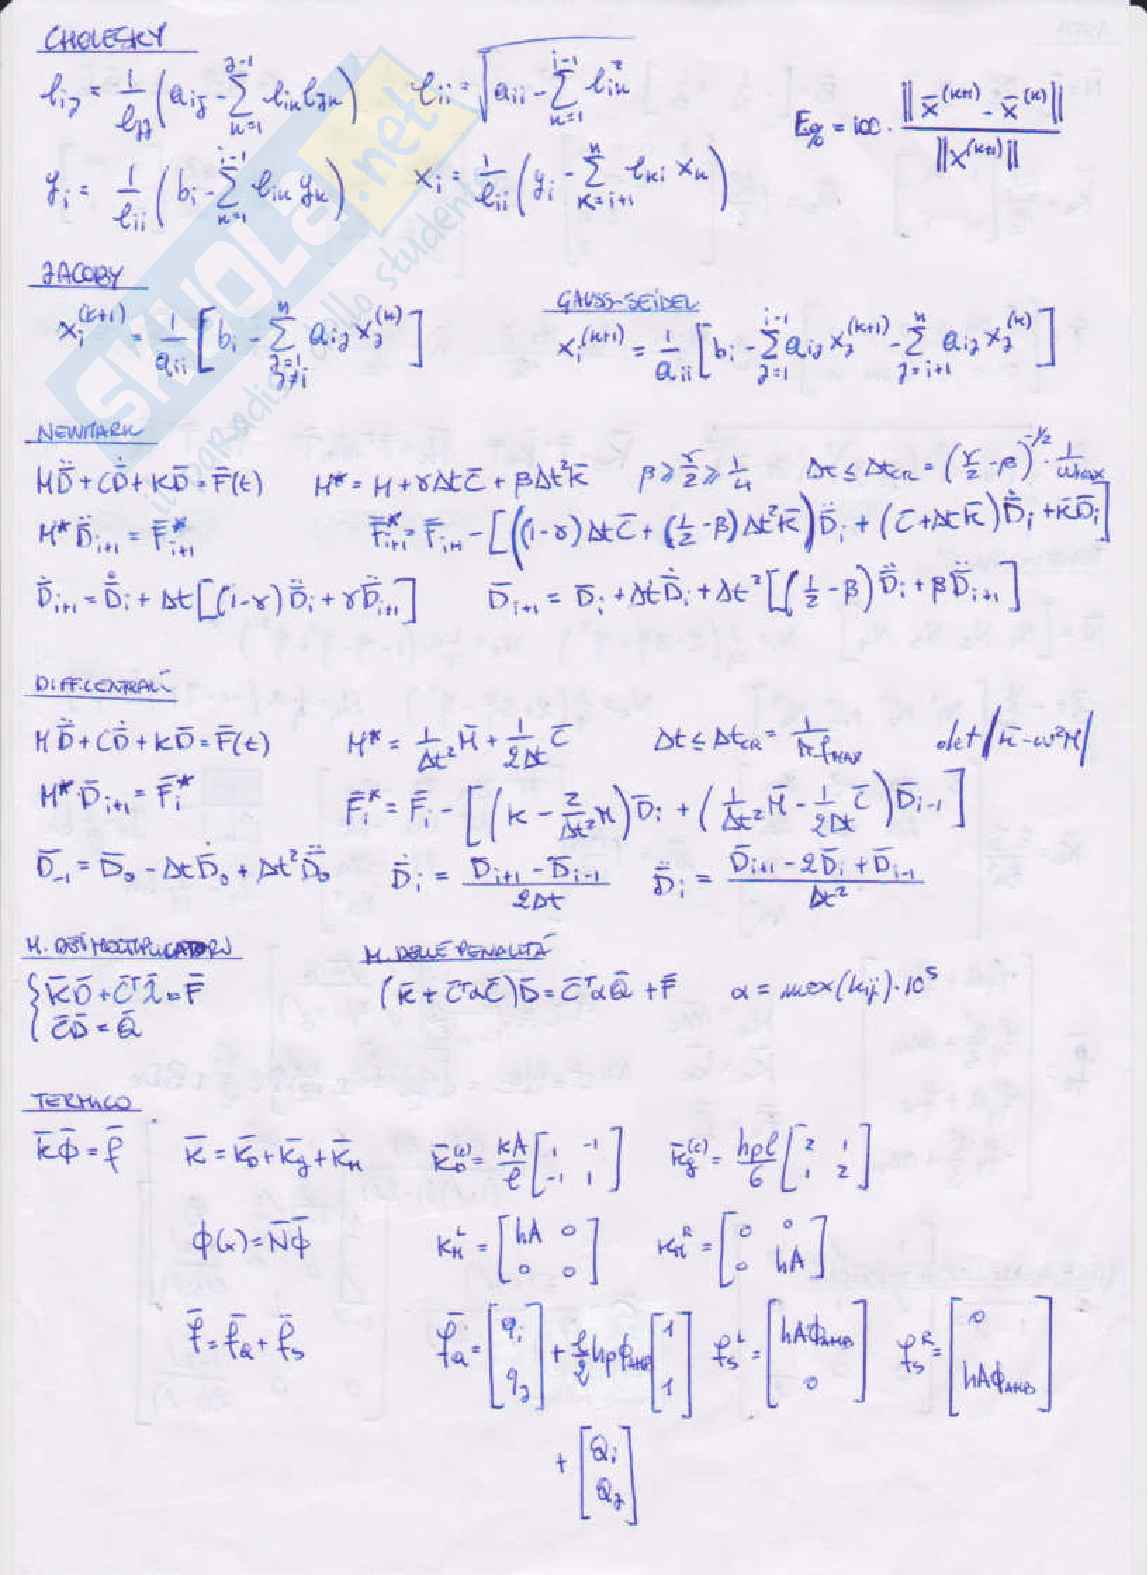 CHOLESKY
l_ij = 1/l_jj (a_ij - Σ_{k=1}^{j-1} l_ik l_jk)   l_ii = √(a_ii - Σ_{k=1}^{i-1} l_ik²)   E% = 100 · ‖x̄^(k+1) - x̄^(k)‖ / ‖x^(k+1)‖
y_i = 1/l_ii (b_i - Σ_{k=1}^{i-1} l_ik y_k)   x_i = 1/l_ii (y_i - Σ_{k=i+1}^{n} l_ki x_k)
JACOBY
x_i^(k+1) = 1/a_ii [b_i - Σ_{j=1, j≠i}^{n} a_ij x_j^(k)]
GAUSS-SEIDEL
x_i^(k+1) = 1/a_ii [b_i - Σ_{j=1}^{i-1} a_ij x_j^(k+1) - Σ_{j=i+1}^{n} a_ij x_j^(k)]
NEWMARK
MD̈ + CḊ + KD̄ = F̄(t)   M* = M + γΔtC̄ + βΔt²K̄   β ≥ γ/2 ≥ 1/4   Δt ≤ Δt_CR = (γ/2 - β)^(-1/2) · 1/ω_MAX
M* D̈_i+1 = F̄*_i+1   F̄*_i+1 = F̄_i+1 - [((1-γ)ΔtC̄ + (1/2 - β)Δt²K̄)D̈_i + (C̄ + ΔtK̄)Ḋ_i + K̄D̄_i]
Ḋ_i+1 = Ḋ_i + Δt[(1-γ)D̈_i + γD̈_i+1]   D̄_i+1 = D̄_i + ΔtḊ_i + Δt²[(1/2 - β)D̈_i + βD̈_i+1]
DIFF.CENTRALI
MD̈ + CḊ + KD̄ = F̄(t)   M* = 1/Δt² M̄ + 1/2Δt C̄   Δt ≤ Δt_CR = 1/(π f_MAX)   det|K̄ - ω²M|
M* D̄_i+1 = F̄_i*   F̄_i* = F̄_i - [(K - 2/Δt² M)D̄_i + (1/Δt² M̄ - 1/2Δt C̄)D̄_i-1]
D̄_-1 = D̄_0 - ΔtḊ_0 + Δt²D̈_0   Ḋ_i = (D_i+1 - D̄_i-1)/2Δt   D̈_i = (D̄_i+1 - 2D̄_i + D̄_i-1)/Δt²
M. DEI MOLTIPLICATORI   M. DELLE PENALITÀ
{ K̄D̄ + C̄ᵀλ̄ = F̄   (K̄ + C̄ᵀαC̄)D̄ = C̄ᵀαQ̄ + F̄   α = max(kij)·10⁵
{ C̄D̄ = Q̄
TERMICO
K̄Φ̄ = f̄   K̄ = K̄_D + K̄_g + K̄_M   K̄_D^(e) = kA/l [1 -1; -1 1]   K̄_g^(e) = hpl/6 [2 1; 1 2]
ϕ(x) = N̄Φ̄   K_M^L = [hA 0; 0 0]   K_M^R = [0 0; 0 hA]
f̄ = f̄_Q + f̄_S   f̄_Q = [q_i; q_j] + l/2 hpϕ_AMB [1; 1]   f_S^L = [hAϕ_AMB; 0]   f_S^R = [0; hAϕ_AMB]
+ [Q_i; Q_j]
SKUOLA.net
il paradiso dello studente